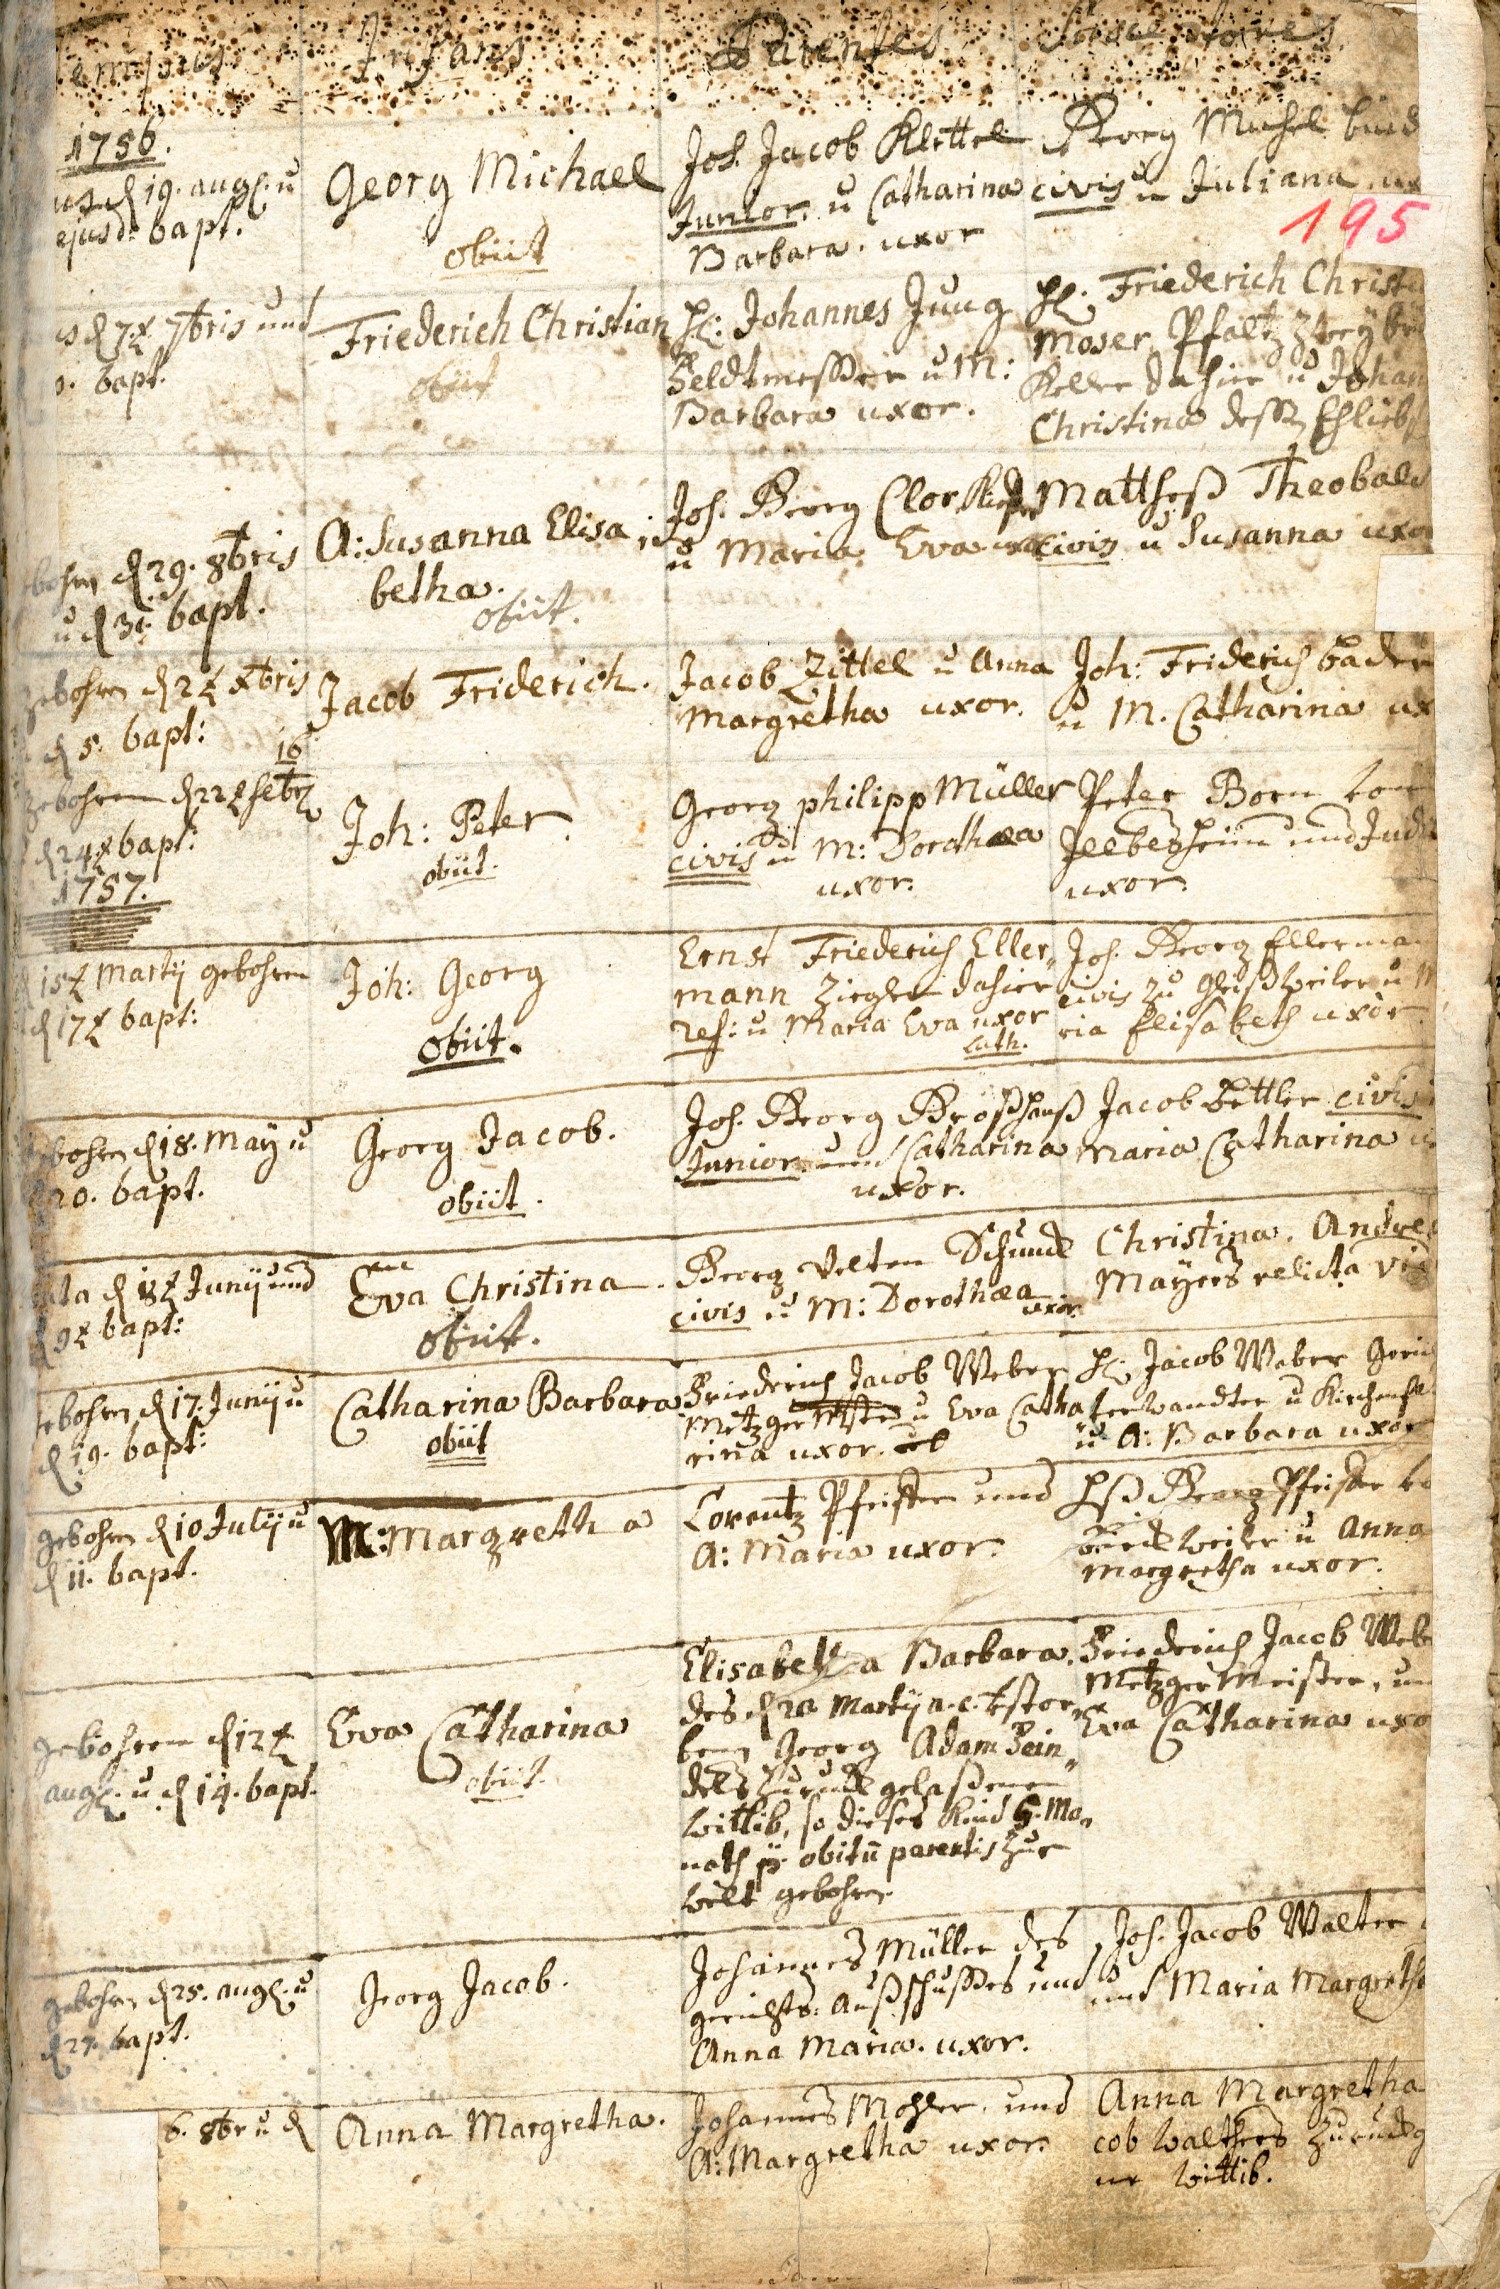 Infans
Parentes
1756.
19. aug. u
ejusd: bapt.
Georg Michael
obiit
Joh. Jacob Klettel
Junior. u Catharina
Barbara. uxor
Georg Michel
civis u Juliana. ux
195
7br̄is und
bapt.
Friederich Christian
obiit
H: Johannes Jung
Feldtmesser u M:
Barbara uxor.
H: Friederich Christi
Moser, Pfaltz Zweybr
Keller dahier u Johan
Christina deß Ehliebst
bohren d 29. 8bris
u d 31. bapt.
A: Susanna Elisa
betha.
obiit.
Joh. Georg Clor
u Maria Eva uxor
Mattheß Theobald
civis u Susanna uxor
gebohren d 2t xbris
d 5. bapt:
Jacob Friderich.
Jacob Zittel u Anna
Margretha uxor.
Joh: Friderich bader
u M. Catharina ux
gebohren d 22t
d 24t bapt:
1757.
Joh: Peter.
obiit.
Georg philipp Müller
civis u M: Dorothea
uxor.
Peter Born von
Ilbesheim und Judit
uxor.
15t Martij gebohren
d 17t bapt:
Joh: Georg
obiit.
Ernst Friederich Eller„
mann Ziegler dahier
ref: u Maria Eva uxor
Luth.
Joh. Georg Ellerman
civis zu Gleißweiler u M
ria Elisabeth uxor
bohren d 18. May u
20. bapt.
Georg Jacob.
obiit.
Joh. Georg Großhanß
Junior und Catharina
uxor.
Jacob Zettler civis
Maria Catharina u
nata d 8t Junij und
d 9t bapt:
Eva Christina.
obiit.
Georg Velten Schunck
civis u M: Dorothea
uxor.
Christina. Andre
Mayers relicta vid
gebohren d 17. Junij u
d 19. bapt:
Catharina Barbara
obiit
Friederich Jacob Weber
Metzger Mster u Eva Catha
rina uxor.
H: Jacob Weber Geric
verwandter u Kirchenst
u A: Barbara uxor
gebohren d 10 Julij u
d 11. bapt.
M: Margretha
Lorentz Pfeiffer und
A: Maria uxor.
Hß Georg Pfeiffer
weiler u Anna
Margretha uxor.
gebohren d 12t
aug. u d 14. bapt.
Eva Catharina
obiit.
Elisabetha Barbara.
des d 20 Martij a. c. verstor„
benen Georg Adam Fein„
dels zuruck gelaßenen
Wittib, so dieses Kind 5. Mo„
nath p. obitū parentis zur
Welt gebohren.
Friederich Jacob Webe
Metzger Meister, un
Eva Catharina uxo
gebohren d 25. aug. u
d 27. bapt.
Georg Jacob.
Johannes Müller des
gerichts: Außschußes und
Anna Maria. uxor.
Joh. Jacob Walter
und Maria Margreth
6. 8br u d
Anna Margretha.
Johannes Mohler. und
A: Margretha uxor.
Anna Margretha
cob Walthers zuruckg
ne Wittib.